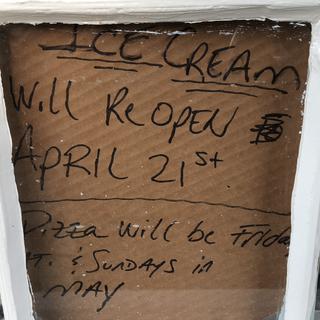 ICE CREAM
Will ReOPEN
APRIL 21st
Pizza will be Friday
& SUNDAYS in
MAY